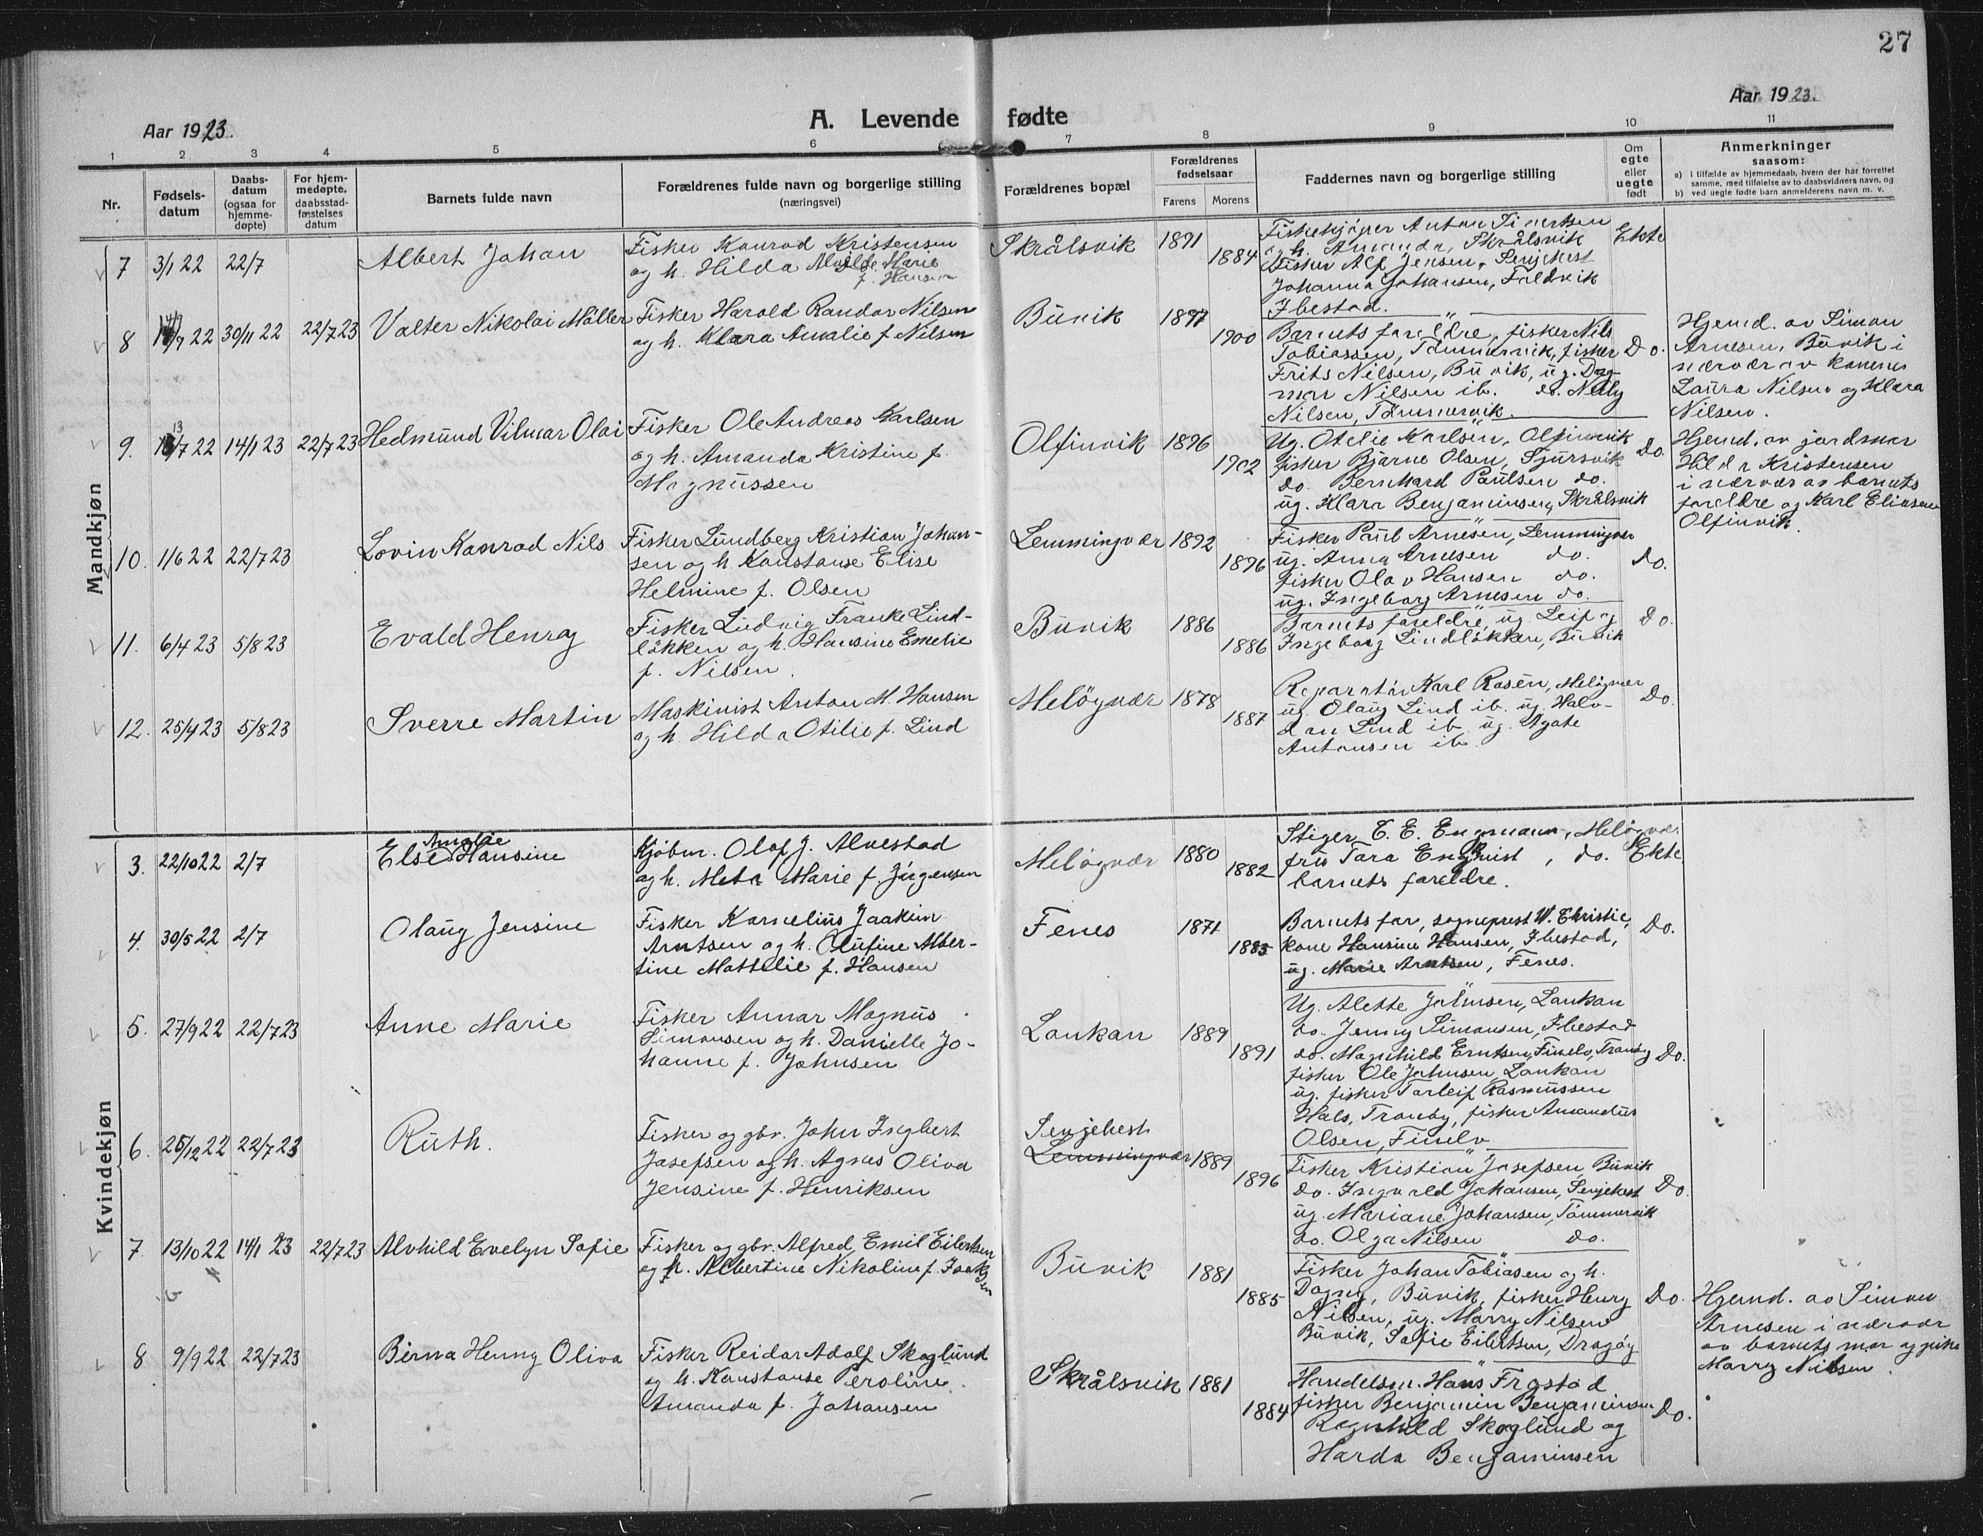 27
Aar 1923.
A. Levende fødte
Aar 1923.
1 2 3 4 5 6 7 8 9 10 11
Nr.
Fødsels-
datum
Daabs-
datum
(ogsaa for
hjemme-
døpte)
For hjem-
medøpte,
daabsstad-
fæstelses
datum
Barnets fulde navn
Forældrenes fulde navn og borgerlige stilling
(næringsvei)
Forældrenes bopæl
Forældrenes
fødselsaar
Farens Morens
Faddernes navn og borgerlige stilling
Om
egte
eller
uegte
født
Anmerkninger
saasom:
a) i tilfælde av hjemmedaab, hvem der har forrettet
samme, med tilføielse av to daabsvidners navn, og
b) ved uegte født barn anmelderens navn m. v.
Mandkjøn
7 3/1 22 22/7
Albert Johan
Fisker Konrad Kristensen
og h. Hilda Alvilde Marie
f. Hansen
Skrålsvik 1891 1884
Fiskekjøper Anton Sivertsen
og h. Amanda, Skrålsvik
Fisker Alf Jensen, Senjehest
Johanna Johansen, Faldvik
Ibestad.
Ekte
8 22 30/11 22 22/7 23
Valter Nikolai Möller
Fisker Harald Randor Nilsen
og h. Klara Amalie f. Nilsen
Büvik 1897 1900
Barnets foreldre, fisker Nils
Tobiassen, Tömmervik, fisker
Frits Nilsen, Büvik, ug. Dag-
mar Nilsen ib. Nelly
Nilsen, Tömmervik.
Do.
Hjemd. av Simon
Arnesen, Büvik i
nærvær av konerne
Laura Nilsen og Klara
Nilsen.
9. 13/7 22 14/1 23 22/7 23
Hedmund Vilmar Olai
Fisker Ole Andreas Karlsen
og h. Amanda Kristine f.
Magnussen
Olfinvik 1896 1902
Ug. Otelie Karlsen, Olfinvik
fisker Bjarne Olsen, Sjursvik
do. Bernhard Paulsen do.
ug. Klara Benjaminsen, Skrålsvik
Do.
Hjemd. av jordmor
Hilda Kristensen
i nærvær av barnets
foreldre og Karl Eliasen
Olfinvik.
10. 1/6 22 22/7 23
Lovin Konrad Nils
Fisker Lundberg Kristian Johan-
sen og h. Konstanse Elise
Helmine f. Olsen
Lemmingvær 1892 1896
Fisker Paul Arnesen, Lemmingvær
ug. Anna Arnesen do.
fisker Olav Hansen do.
ug. Ingeborg Arnesen do.
Do.
11. 6/4 23 5/8 23
Evald Henry
Fisker Ludvig Franke Lind-
løkken og h. Hansine Emelie
f. Nilsen.
Büvik 1886 1886
Barnets foreldre, ug. Leif og
Ingeborg Lindløkken, Büvik
Do.
12. 25/4 23 5/8 23
Sverre Martin
Maskinist Anton M. Hansen
og h. Hilda Otilie f. Lind
Meløyvær 1878 1887
Reparatør Karl Rosen, Meløyvær
ug. Olaug Lind ib. ug. Halv-
dan Lind ib. ug. Agate
Antonsen ib.
Do.
Kvindekjøn
3. 22/10 22 2/7
Amalie
Else Hansine
Kjøbm. Olaf J. Alvestad
og h. Meta Marie f. Jørgensen
Meløyvær 1880 1882
Stiger C. E. Engmann, Meløyvær
fru Tora Engkvist, do.
barnets foreldre.
Ekte
4. 30/5 22 2/7
Olaug Jensine
Fisker Kornelius Joakim
Arntsen og h. Olufine Alber-
tine Mattelie f. Hansen
Fenes 1871 1883
Barnets far, sogneprest W. Christie,
kone Hansine Hansen, Ibestad,
ug. Marie Arntsen, Fenes.
Do.
5. 27/9 22 22/7 23
Anne Marie
Fisker Annar Magnus
Simonsen og h. Danielle Jo-
hanne f. Johnsen
Lonkan 1889 1891
Ug. Alette Johnsen, Lonkan
do. Jenny Simonsen, Ibestad
do. Magnhild Erntsen, Finelv, Tranøy
fisker Ole Johnsen, Lonkan
ug. fisker Torleif Rasmussen
Hals, Tranöy, fisker Amandus
Olsen, Finelv
Do.
6. 25/12 22 22/7 23
Ruth.
Fisker og gbr. John Ingbert
Josefsen og h. Agnes Oliva
Jensine f. Henriksen
Senjehest
Lemmingvær 1889 1896
Fisker Kristian Josefsen Büvik
do. Ingvald Johansen, Senjehest
ug. Mariane Johansen, Tömmervik
do. Olga Nilsen do.
Do.
7. 13/10 22 14/1 23 22/7 23
Alvhild Evelyn Sofie
Fisker og gbr. Alfred Emil Eibertsen
og h. Albertine Nikoline f. Isaksen
Büvik 1881 1885
Fisker Johan Tobiasen og h.
Dagny, Büvik, fisker Henry
Nilsen, ug. Marry Nilsen
Büvik, Sofie Eibertsen, Dragøy
Do.
Hjemd. av Simon
Arnesen i nærvær
av barnets mor og pike
Marry Nilsen.
8 9/9 22 22/7 23
Birna Henny Oliva
Fisker Reidar Adolf Skoglund
og h. Konstanse Peroline
Amanda f. Johansen
Skrålsvik 1881 1884
Handelsm. Hans Frostad
fisker Benjamin Benjaminsen
Ragnhild Skoglund og
Harda Benjaminsen
Do.